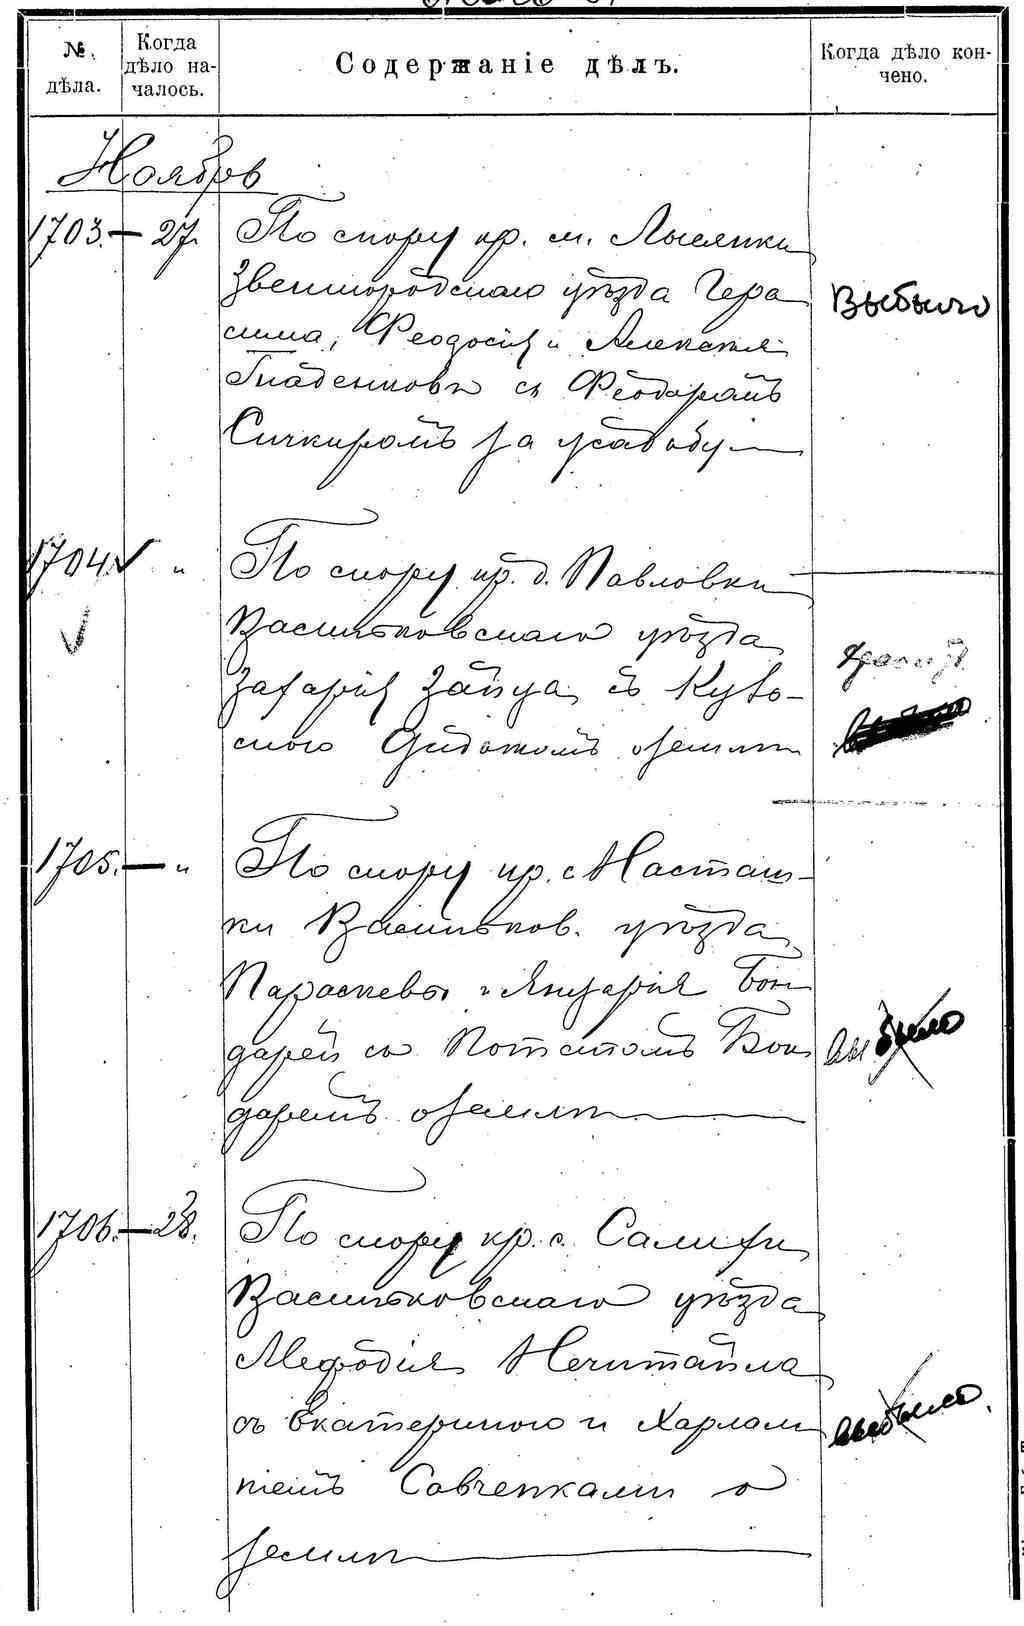 № дѣла.
Когда дѣло на-
чалось.
Содержаніе дѣлъ.
Когда дѣло кон-
чено.
Ноябрь
1703. — 27.
По спору кр. м. Лысянки
Звенигородскаго уѣзда Гера
сима, Феодосія и Алексѣя
Гладенковъ съ Феодоромъ
Сичкиромъ за усадьбу —
Выбыло
1704. "
По спору кр. д. Павловки
Васильковскаго уѣзда
Захарія Заица съ
о земли
1705. — "
По спору кр. с Насташ-
ки Васильков. уѣзда
Параскевы и Януарія Бон
дарей съ Потапомъ Бон
даремъ о земли —
выбыло
1706. — 28.
По спору кр. с. Салихи
Васильковскаго уѣзда
Мефодія Нечитайла
съ Екатериною и Харлам
піемъ Савченками о
земли —
выбыло.